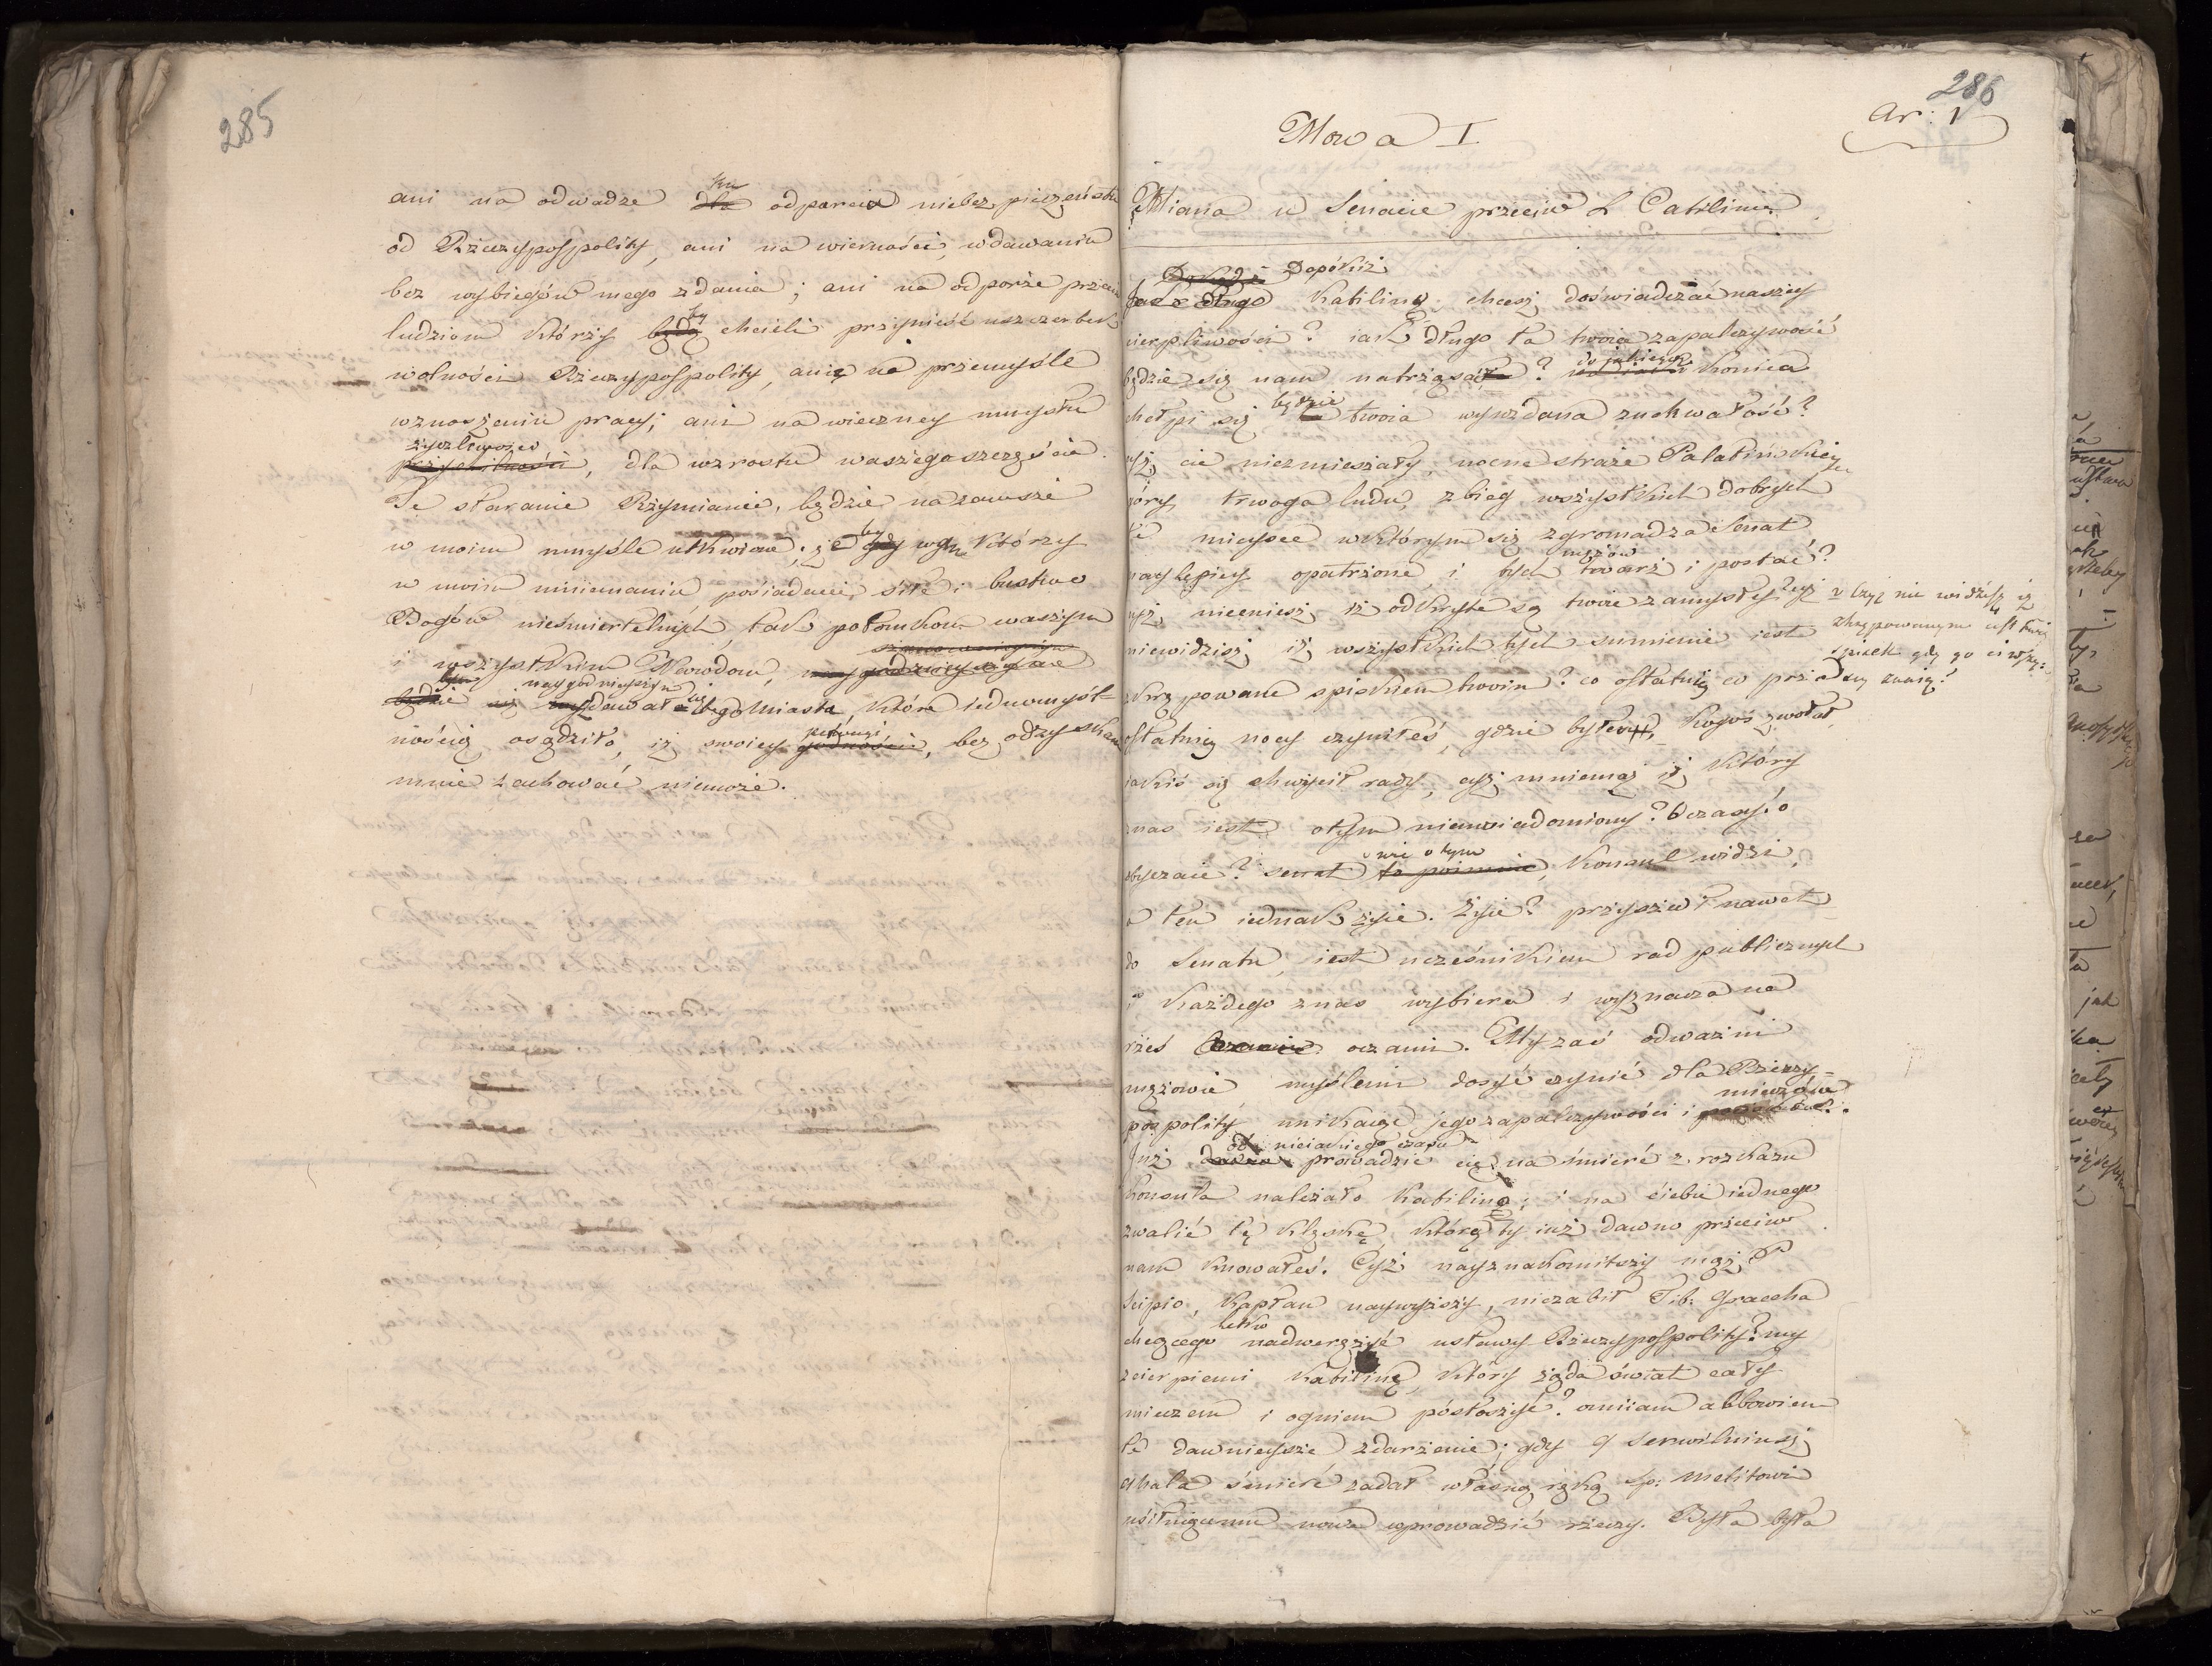 285
ani na odwadze dla ku odparcia niebezpieczeństw
od Rzeczypospolity, ani na wierności, wdawaniu
bez wybiegów mego zdania; ani na odporze przeciw
ludziom którzy będą by chcieli przynieść uszczerbek
wolności Rzeczypospolity, ani na przemyśle
wznoszeniu pracy; ani na wieczney umysłu
życzliwości
przychilności, dla wzrostu waszego szczęścia.
Te staranie Rzymianie, będzie nazawsze
w moim umyśle utkwione; że by gdy wy którzy
w moim mniemaniu posiadacie siłe i bustwo
Bogów nieśmiertelnych, tak potomkom waszym
i wszystkim Narodom,
naygodnieyszym
będzie się wydawał tego Miasta, które iednomyśl-
nością osądziło, iż swoiey godności, bez odzyskan
mnie zachować niemoże.
286
ar: 1
Mowa I
Miana w Senacie przeciw L Catilinie
Dokądż Dopókiż
Jak długo Katilino chcesz doświadczać naszey
cierpliwości? iak długo ta twoia zapalczywość
będzie się nam natrząsać? do jakiego konica
chełpi się będzie twoia wyuzdana zuchwałość?
yż cie niezmieszały, nocne straże Palatińskiey
góry, trwoga ludu, zbieg wszystkich dobrych
te mieysce wktórym się zgromadza Senat
naylepiey opatrzone, i tych mężów twarz i postać?
yż niecziesz iż odkryte są twoie zamysły? czyż
v Czyż nie widzisz iż
niewidzisz iż wszystkich tych sumienie iest
skrępowanym iest twóy
spisek gdy go ci wszy-
skrępowane spiskiem twoim? co ostatnią co przed
scy znaią?
ostatnią nocy czyniłeś, gdzie byłeś, kogoś zwołał,
iakiś się chwycił rady, czyż mniemasz iż który
znas iest otym nieuwiadomiony? O czasy! o
obyczaie? senat wie o tym to poimuie, Konsul widzi,
a ten iednak żyie. Żyie? przyszedł nawet
do Senatu, iest ucześnikiem rad publicznych
i każdego znas wybiera i wyznacza na
rzeź oczami. My zaś odważni
mężowie myślemy dosyć czynić dla Rzeczy-
pospolity unikaiąc jego zapalczywości i mieczów.
Już dawno od nieiakiego czasu prowadzić cię na śmierć z rozkazu
Konsula należało Katilino; i na ciebie iednego
zwalić tę klęskę, którą ty iuż dawno przeciw
nam knowałeś. Czyż nayznakomitszy mąż P
Scipio, kapłan naywyższy, niezabił Tib: Graccha
chcącego letko nadwerężyć ustawy Rzeczypospolity? my
zcierpiemi Katilinę, który żąda świat cały
mieczem i ogniem póstoszyć? omiiam albowiem
te dawnieysze zdarzenie; gdy Q Serwiliusz
Ahala śmierć zadał własną ręką Sp: Melitowi
usiłuiącemu nowe wprowadzić rzeczy. Była była